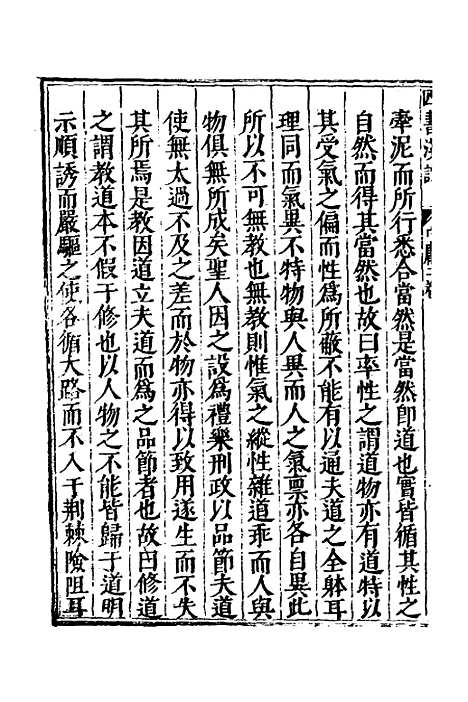 牽泥而所行悉合當然是當然卽道也實皆循其性之
自然而得其當然也故曰率性之謂道物亦有道特以
其受氣之偏而性爲所敝不能有以通夫道之全躰耳
理同而氣異不特物與人異而人之氣禀亦各自異此
所以不可無教也無教則惟氣之縱性雖道乖而人與
物俱無所成矣聖人因之設爲禮樂刑政以品節夫道
使無太過不及之差而於物亦得以致用遂生而不失
其所焉是教因道立夫道而爲之品節者也故曰修道
之謂教道本不假于修也以人物之不能皆歸于道明
示順誘而嚴驅之使各循大路而不入于荆棘險阻耳